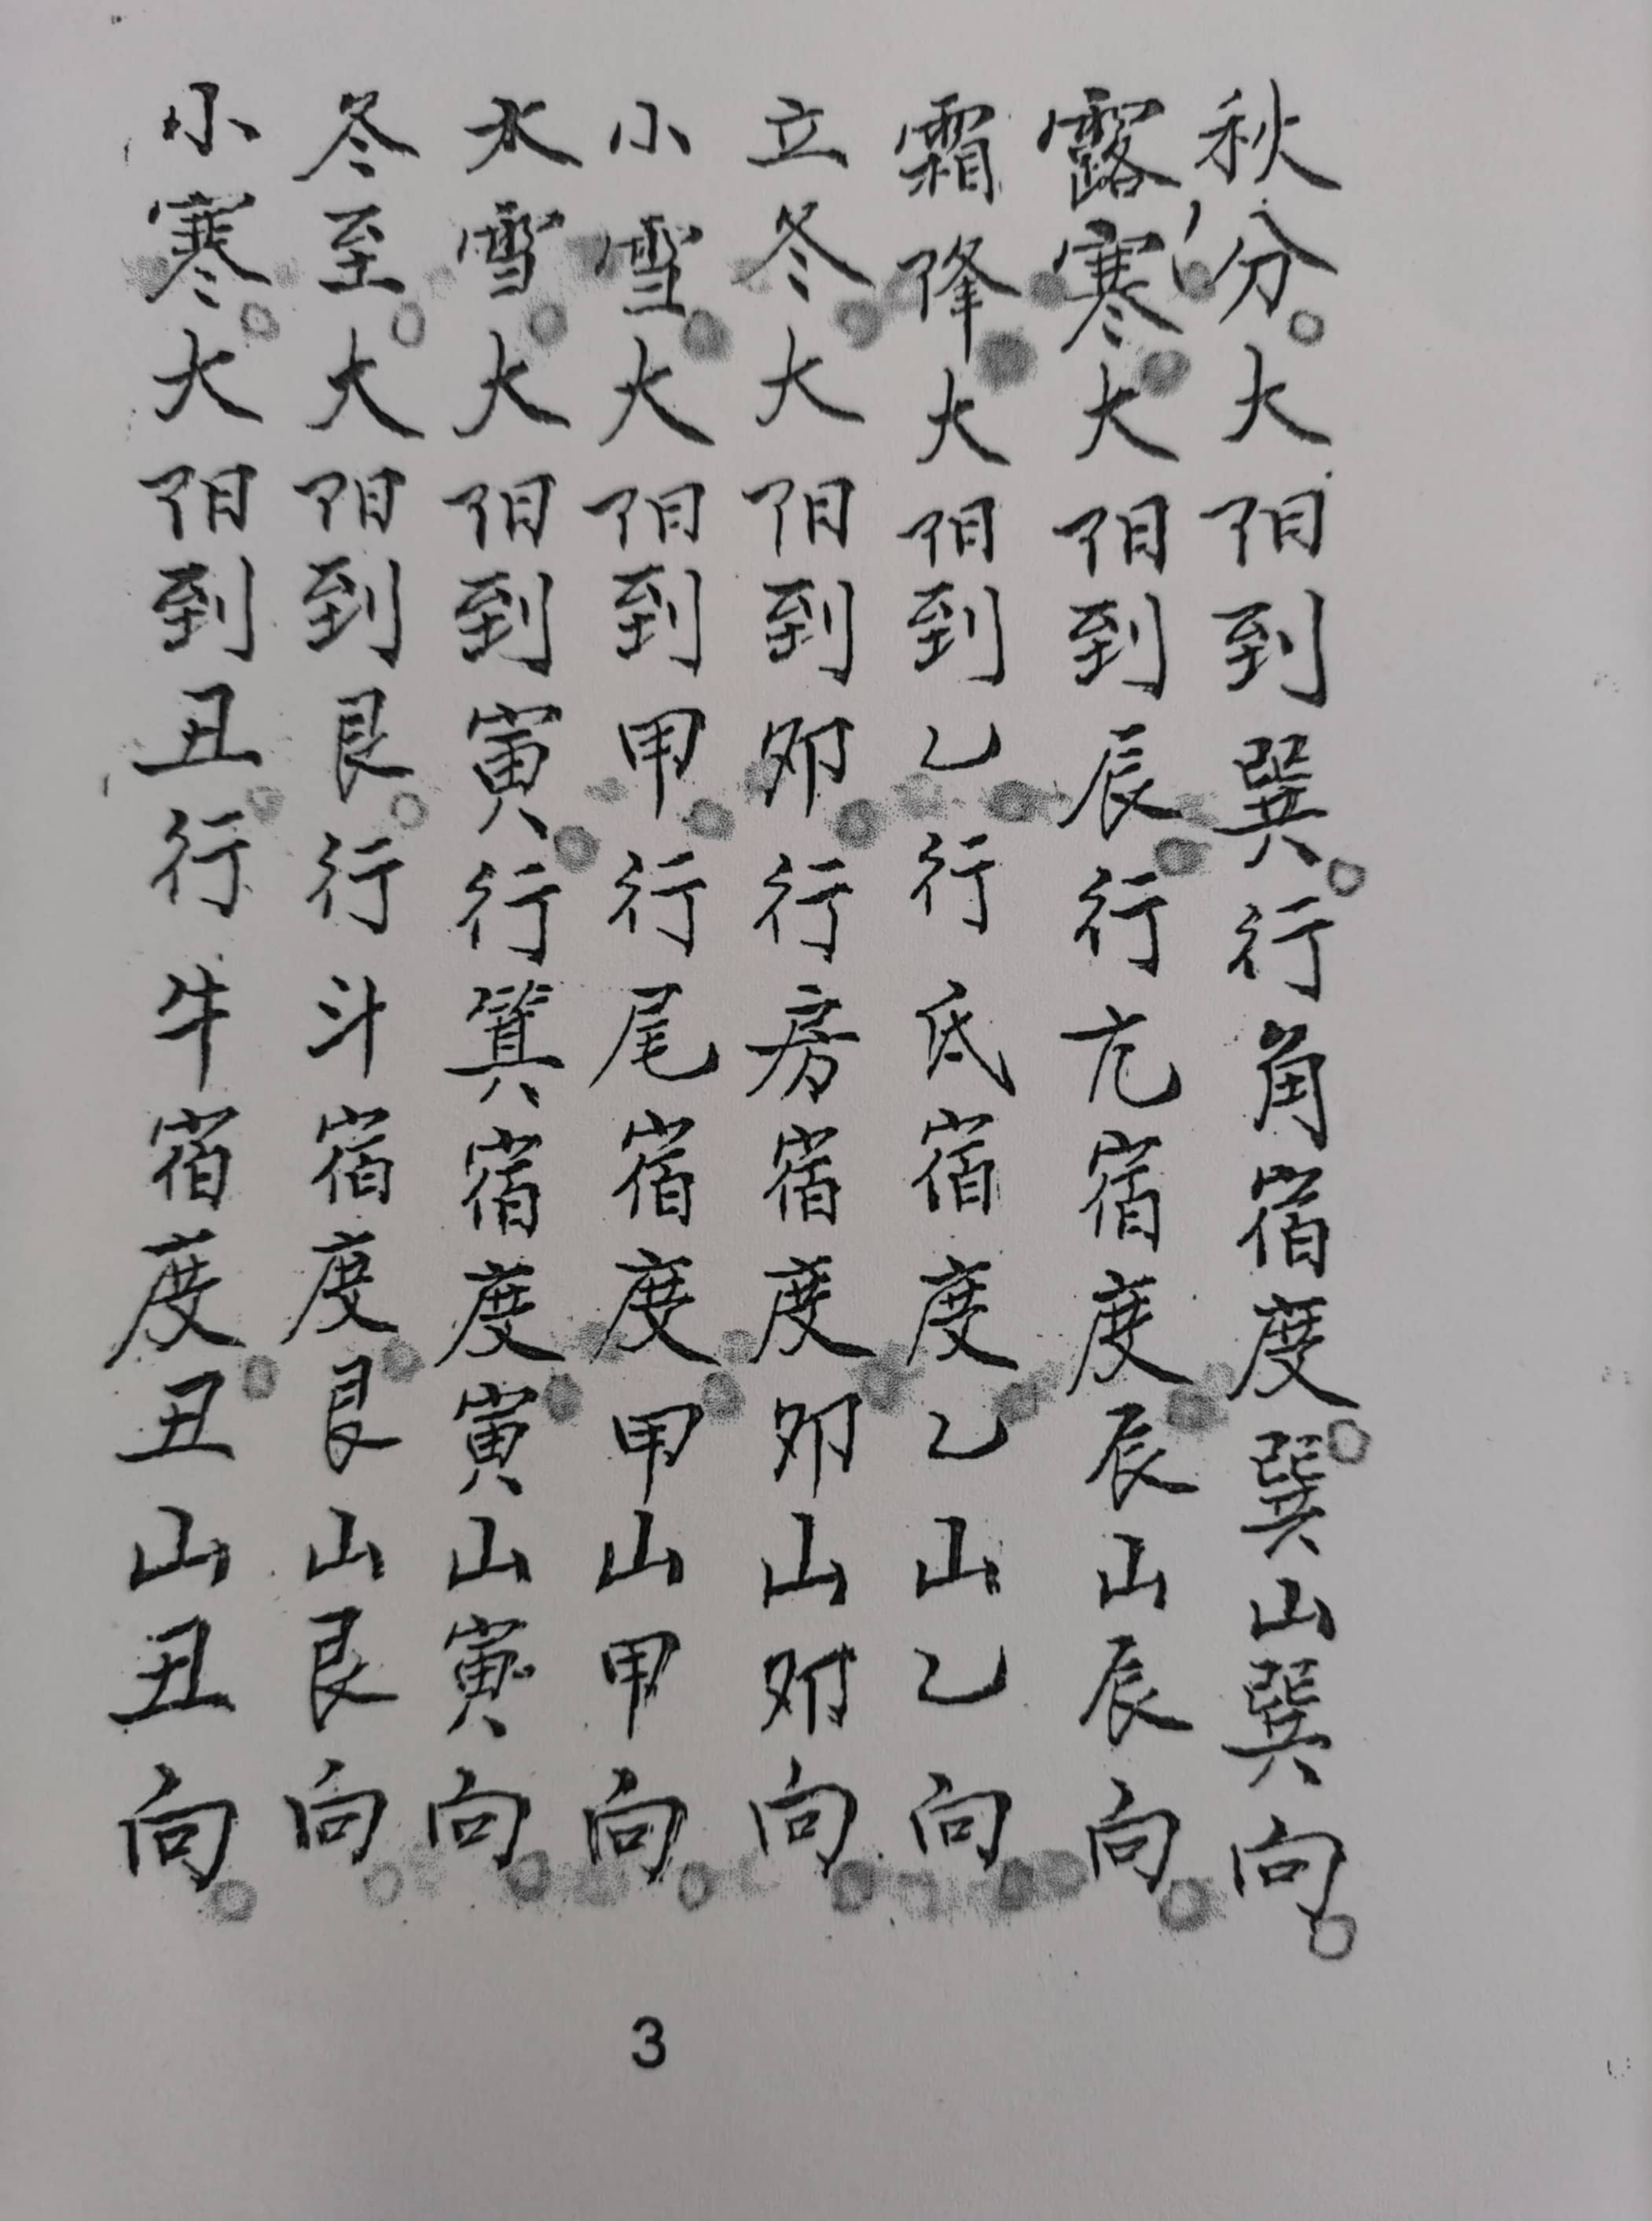 秋分。大阳到巽。行角宿度。巽山巽向。
露寒。大阳到辰。行亢宿度。辰山辰向。
霜降。大阳到乙。行氐宿度。乙山乙向。
立冬。大阳到卯。行房宿度。卯山卯向。
小雪。大阳到甲。行尾宿度。甲山甲向。
大雪。大阳到寅。行箕宿度。寅山寅向。
冬至。大阳到艮。行斗宿度。艮山艮向。
小寒。大阳到丑。行牛宿度。丑山丑向。
3